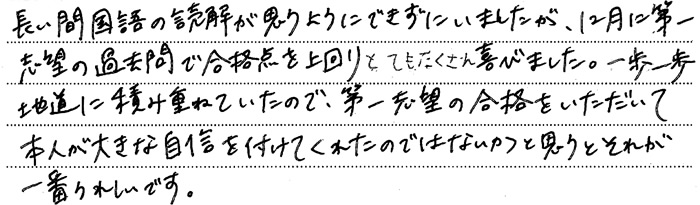 長い間国語の読解が思うようにできずにいましたが、12月に第一
志望の過去問で合格点を上回りとてもたくさん喜びました。一歩一歩
地道に積み重ねていたので、第一志望の合格をいただいて
本人が大きな自信を付けてくれたのではないかと思うとそれが
一番うれしいです。